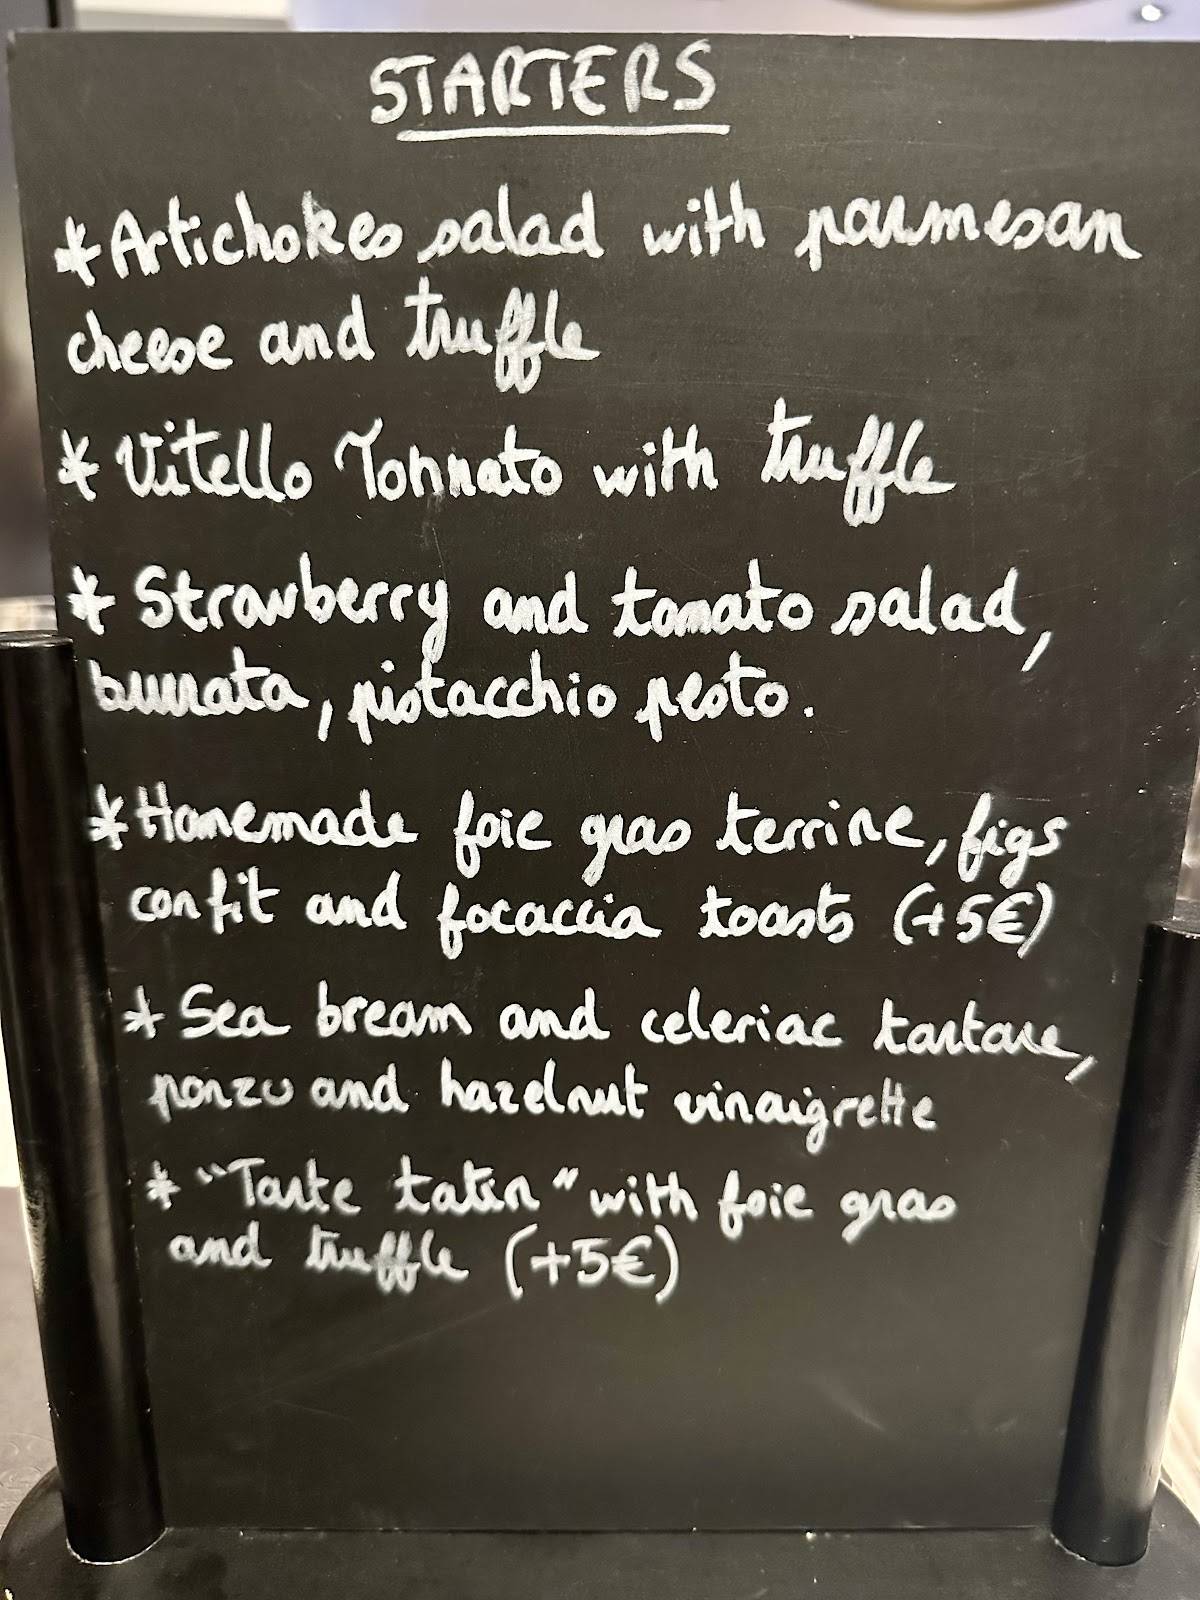 STARTERS
*Artichokes salad with parmesan
cheese and truffle
* Vitello Tonnato with truffle
* Strawberry and tomato salad,
burrata, pistacchio pesto.
*Homemade foie gras terrine, figs
confit and focaccia toasts (+5€)
* Sea bream and celeriac tartare,
ponzu and hazelnut vinaigrette
* "Tarte tatin" with foie gras
and truffle (+5€)